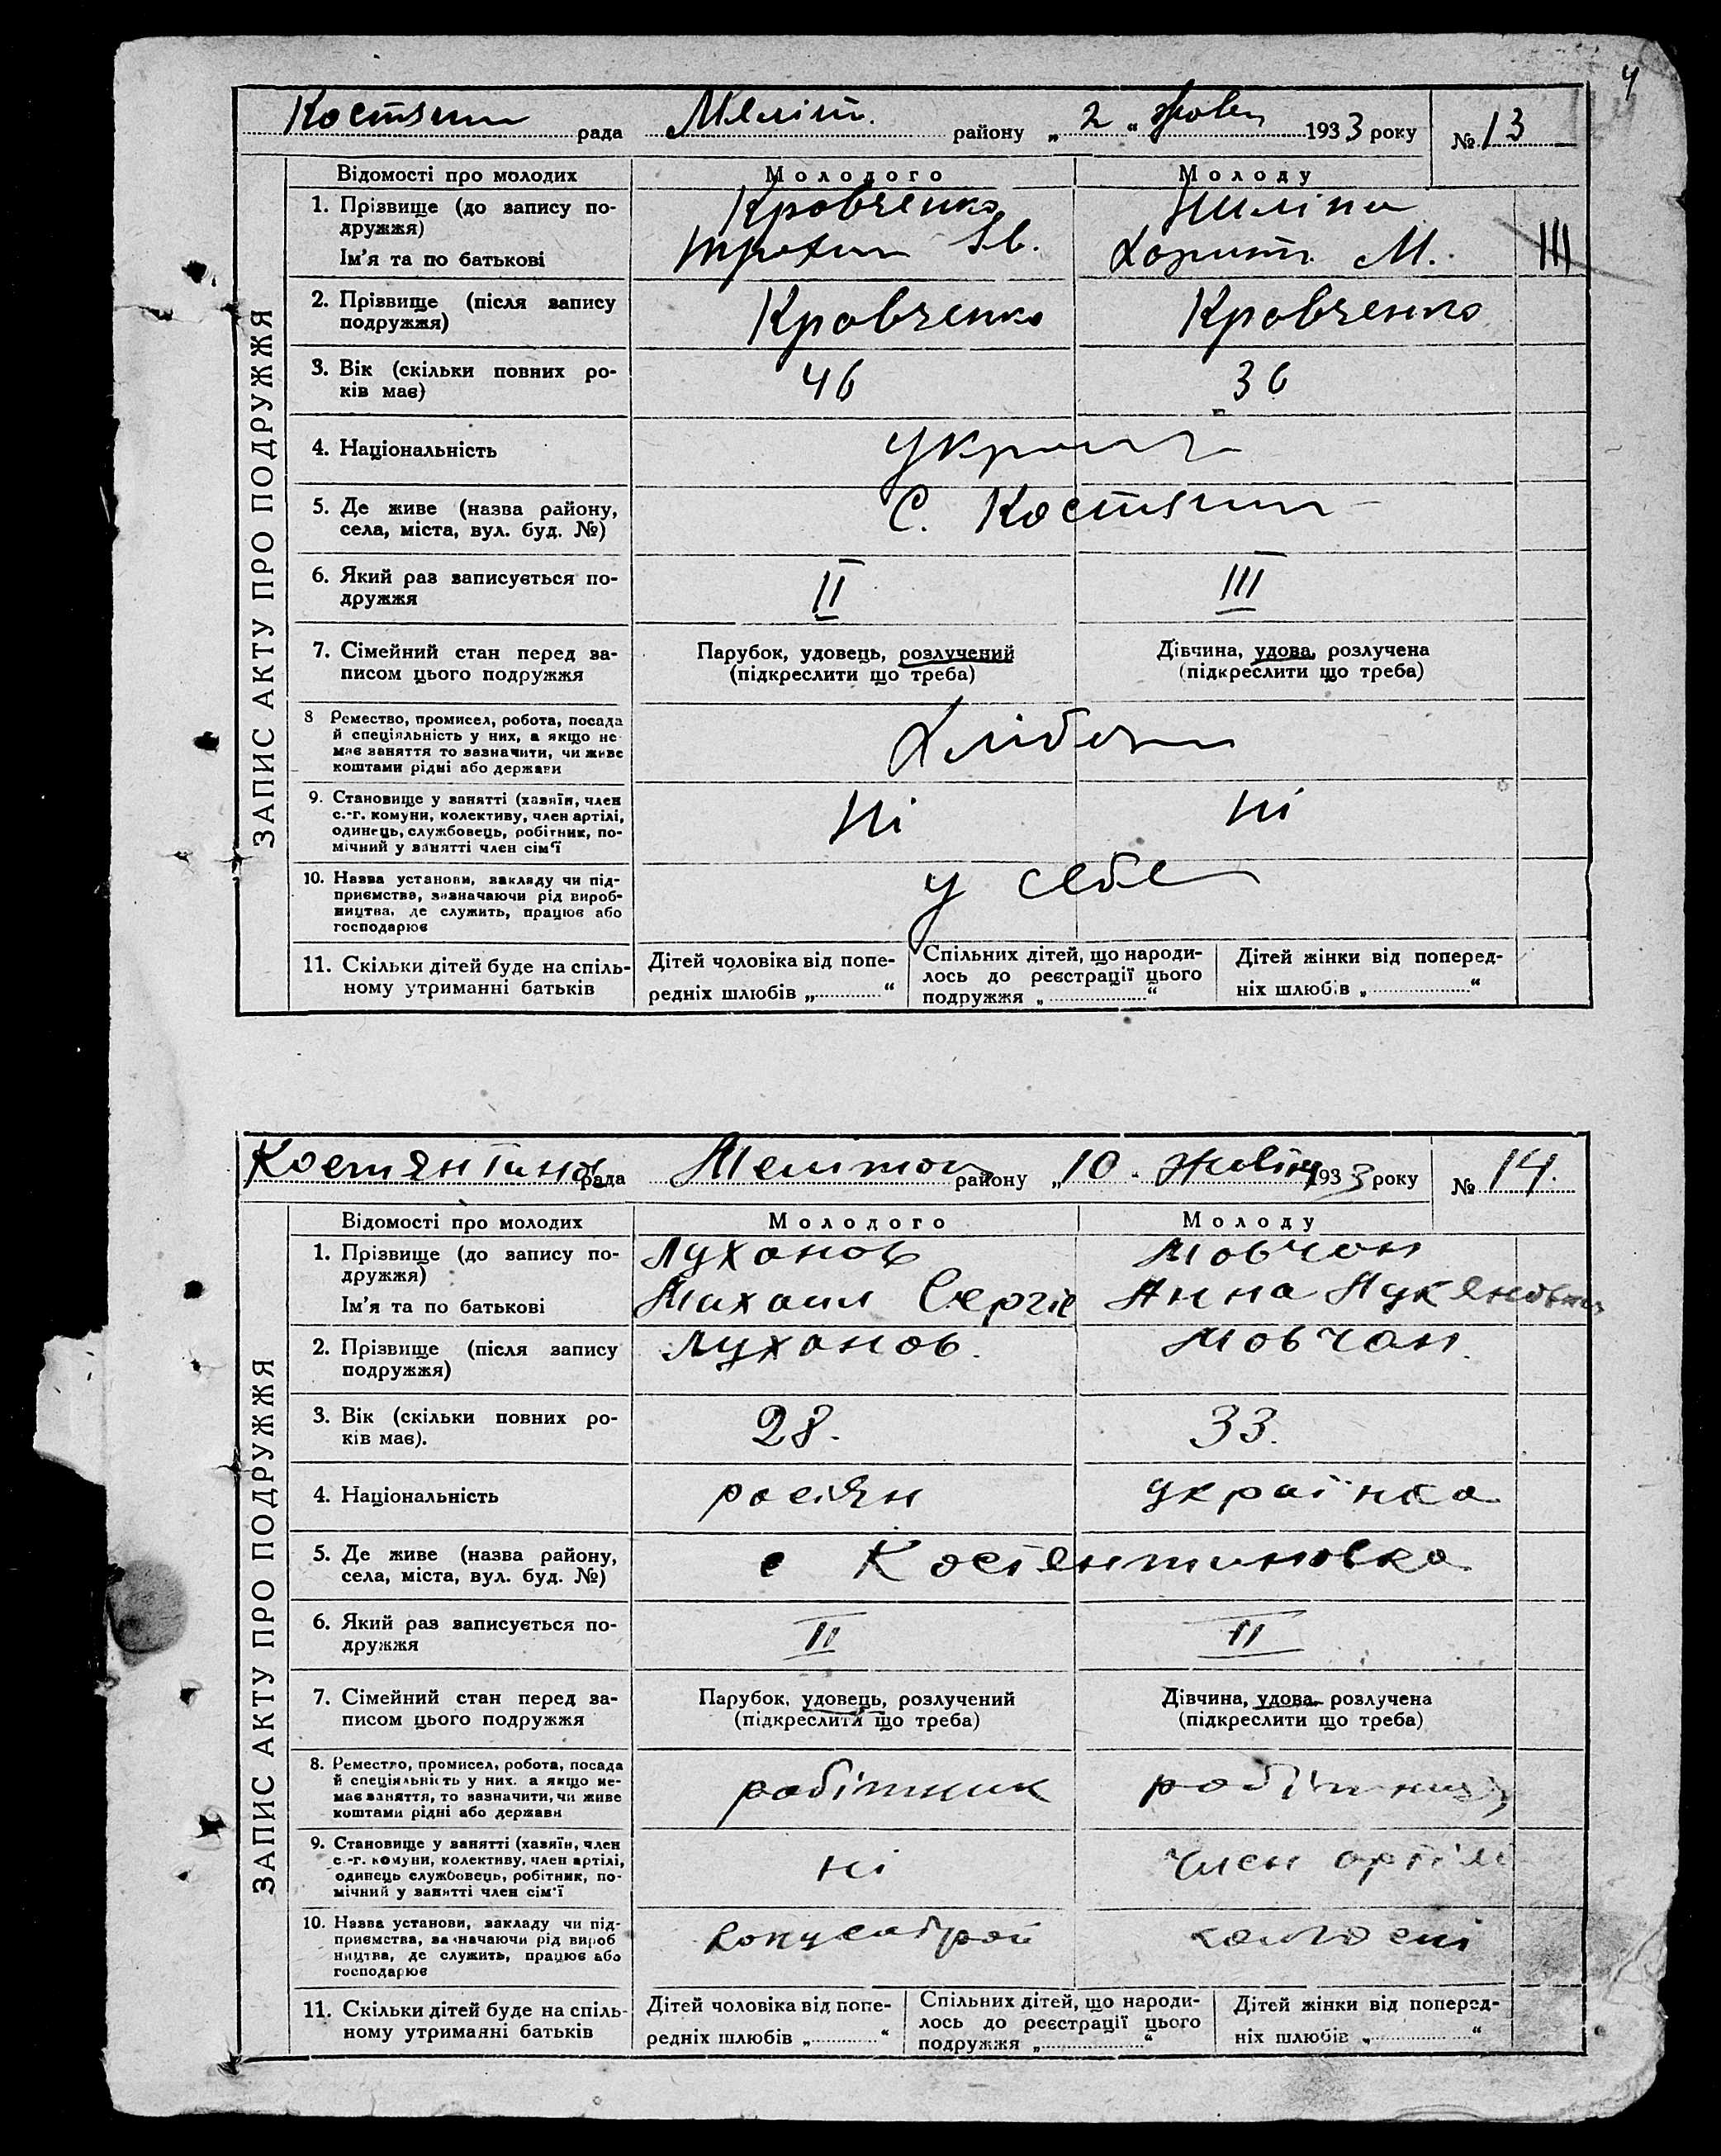 4
рада Меліт. району „ 2 “ 1933 року № 13
ЗАПИС АКТУ ПРО ПОДРУЖЖЯ
Відомості про молодих Молодого Молоду
1. Прізвище (до запису по-
дружжя) Кравченко
Ім'я та по батькові М. III
2. Прізвище (після запису
подружжя) Кравченко Кравченко
3. Вік (скільки повних ро-
ків має) 46 36
4. Національність
5. Де живе (назва району,
села, міста, вул. буд. №) С.
6. Який раз записується по-
дружжя II III
7. Сімейний стан перед за-
писом цього подружжя
Парубок, удовець, розлучений
(підкреслити що треба)
Дівчина, удова, розлучена
(підкреслити що треба)
8 Ремество, промисел, робота, посада
й спеціяльність у них, а якщо не
має заняття то зазначити, чи живе
коштами рідні або держави
9. Становище у занятті (хазяїн, член
с.-г. комуни, колективу, член артілі,
одинець, службовець, робітник, по-
мічний у занятті член сім'ї Ні Ні
10. Назва установи, закладу чи під-
приємства, зазначаючи рід вироб-
ництва, де служить, працює або
господарює у себе
11. Скільки дітей буде на спіль-
ному утриманні батьків
Дітей чоловіка від попе-
редніх шлюбів „ “
Спільних дітей, що народи-
лось до реєстрації цього
подружжя „ “
Дітей жінки від поперед-
ніх шлюбів „ “
рада району „ 10 1933 року № 14.
ЗАПИС АКТУ ПРО ПОДРУЖЖЯ
Відомості про молодих Молодого Молоду
1. Прізвище (до запису по-
дружжя) Луханов Мовчан
Ім'я та по батькові Михаил Сергіє Анна
2. Прізвище (після запису
подружжя) Луханов. Мовчан.
3. Вік (скільки повних ро-
ків має). 28. 33.
4. Національність росіян українка
5. Де живе (назва району,
села, міста, вул. буд. №) с
6. Який раз записується по-
дружжя II II
7. Сімейний стан перед за-
писом цього подружжя
Парубок, удовець, розлучений
(підкреслити що треба)
Дівчина, удова, розлучена
(підкреслити що треба)
8. Ремество, промисел, робота, посада
й спеціяльність у них. а якщо не-
має заняття, то зазначити, чи живе
коштами рідні або держави робітник робітниця
9. Становище у занятті (хазяїн, член
с.-г. комуни, колективу, член артілі,
одинець службовець, робітник, по-
мічний у занятті член сім'ї ні член артілі
10. Назва установи, закладу чи під-
приємства, зазначаючи рід вироб
ництва, де служить, працює або
господарює
11. Скільки дітей буде на спіль-
ному утриманні батьків
Дітей чоловіка від попе-
редніх шлюбів „ “
Спільних дітей, що народи-
лось до реєстрації цього
подружжя „ “
Дітей жінки від поперед-
ніх шлюбів „ “